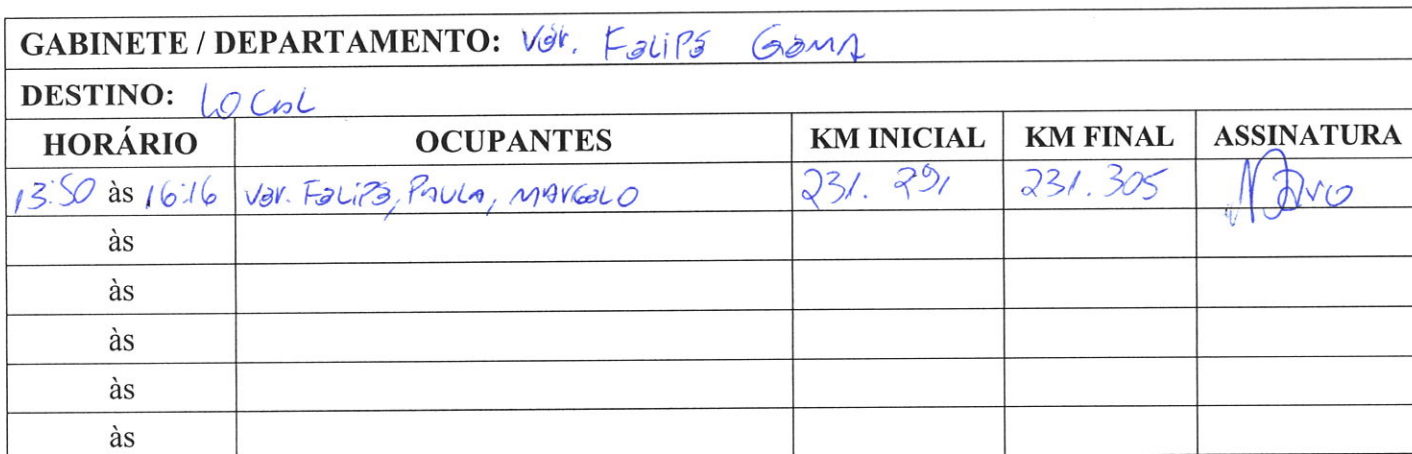 GABINETE / DEPARTAMENTO: Ver. Felipe Gama
DESTINO: LOCAL
HORÁRIO OCUPANTES KM INICIAL KM FINAL ASSINATURA
13:50 às 16:16 Ver. Felipe, PAULA, MARCELO 231.291 231.305
às
às
às
às
às